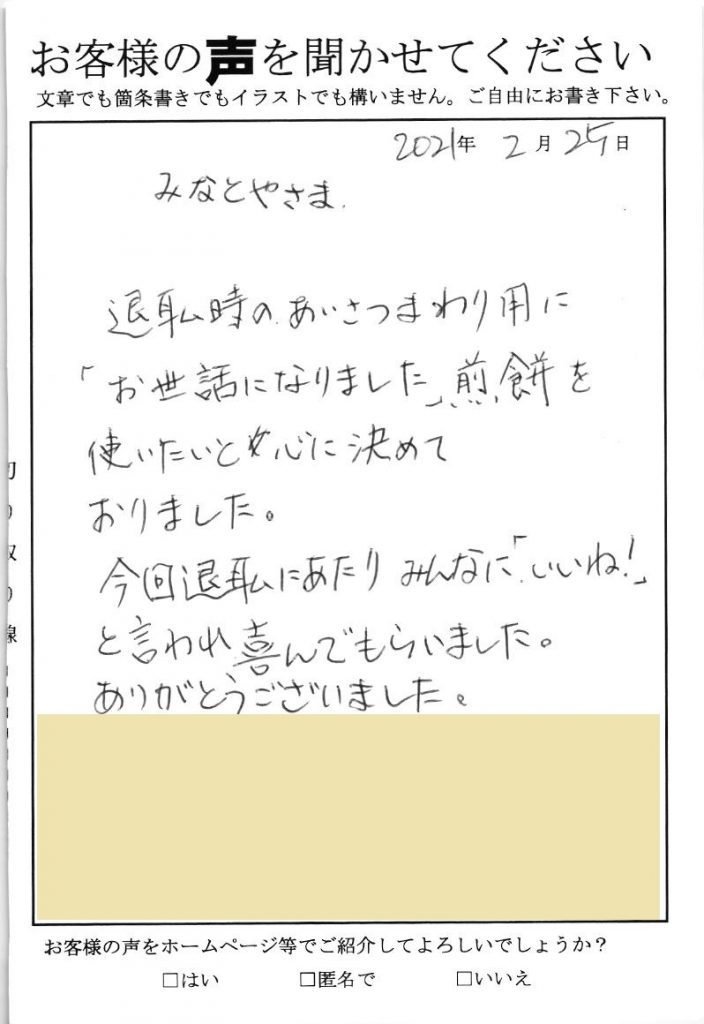 お客様の声を聞かせてください
文章でも箇条書きでもイラストでも構いません。ご自由にお書き下さい。
2021年 2月25日
みなとやさま.
退職時のあいさつまわり用に
「お世話になりました」煎餅を
使いたいと心に決めて
おりました。
今回退職にあたりみんなに「いいね!」
と言われ喜んでもらいました。
ありがとうございました。
お客様の声をホームページ等でご紹介してよろしいでしょうか?
□はい □匿名で □いいえ